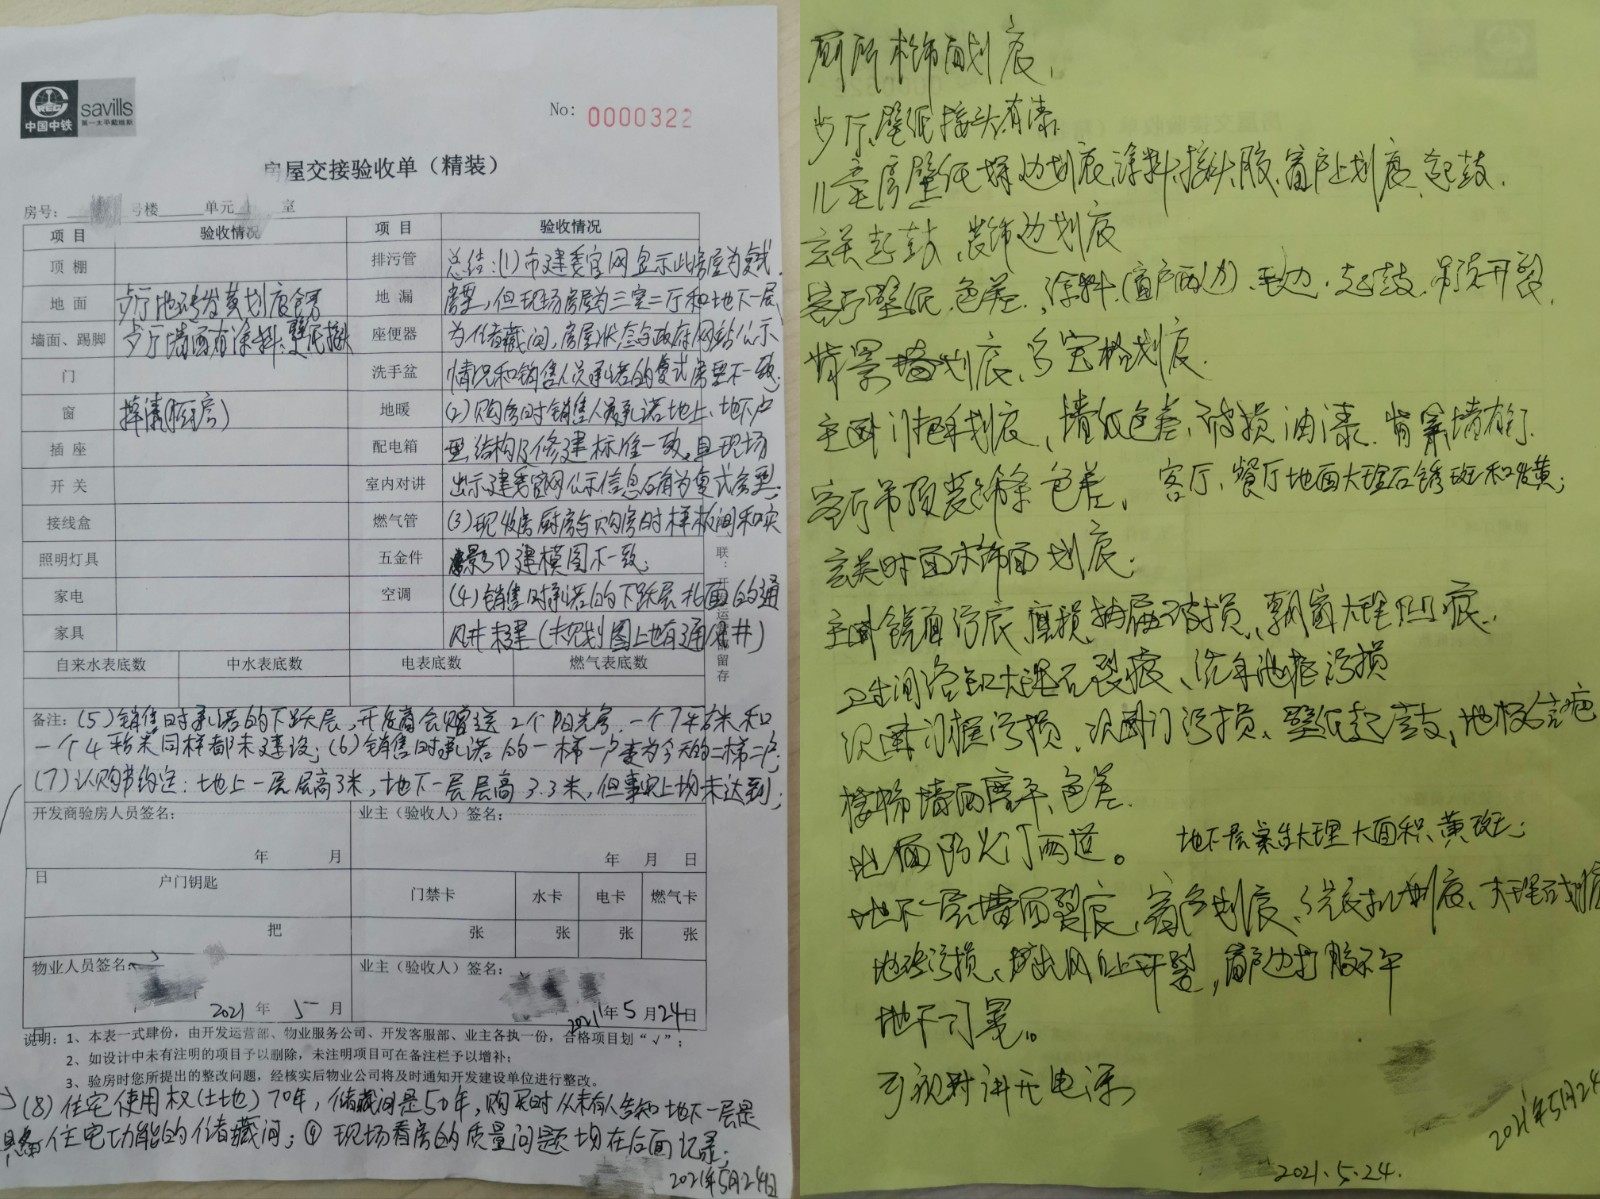 中国中铁
savills
第一太平戴维斯
No: 0000322
房屋交接验收单（精装）
房号： 号楼 单元 室
项目 验收情况 项目 验收情况
顶棚 排污管 总结:(1)市建委官网显示此房屋为复式
地面 步厅地砖发黄划痕 地漏 房型,但现场房屋为三室二厅和地下一层
墙面、踢脚 步厅墙面有涂料、壁纸接头 座便器 为储藏间,房屋状态与政府网站公示
门 洗手盆 情况和销售人员承诺的复式房型不一致.
窗 掉漆 地暖 (2)购房时销售人员承诺地上、地下户
插座 配电箱 型结构及修建标准一致,且现场
开关 室内对讲 出示建委官网公示信息 为复式房型.
接线盒 燃气管 (3)现收房厨房与购房时样板间和实
照明灯具 五金件 景3D建模图不一致.
家电 空调 (4)销售时承诺的下跃层 的通
家具 风井未建(规划图上也有通风井)
联：开 运 留存
自来水表底数 中水表底数 电表底数 燃气表底数
备注: (5)销售时承诺的下跃层、开发商会赠送2个阳光房,一个7平方米和
一个4平米同样都未建设;(6)销售时承诺的一梯一户变为今天的二梯二户;
(7)认购书约定:地上一层层高3米,地下一层层高3.3米,但事实上均未达到;
开发商验房人员签名： 业主（验收人）签名：
年 月 日 年 月 日
户门钥匙 门禁卡 水卡 电卡 燃气卡
把 张 张 张 张
物业人员签名： 业主（验收人）签名：
2021年 5 月 日 2021年5月24日
说明：1、本表一式肆份，由开发运营部、物业服务公司、开发客服部、业主各执一份，合格项目划“√”；
2、如设计中未有注明的项目予以删除，未注明项目可在备注栏予以增补；
3、验房时您所提出的整改问题，经核实后物业公司将及时通知开发建设单位进行整改。
(8)住宅使用权(土地)70年,储藏间是50年,购买时从未有人告知地下一层是
具备住宅功能的储藏间;⑨现场看房的质量问题均在后面记录;
2021年5月24日
厕所木饰面划痕.
步厅壁纸接头有漆
儿童房壁纸 边划痕、涂料、接头胶、窗户上划痕、起鼓.
玄关起鼓、装饰边划痕
客厅壁纸、色差、涂料(窗户两边)毛边、起鼓、吊顶开裂.
背景墙划痕、多宝格划痕.
主卧门把手划痕、墙纸色差、破损油漆.背景墙有钉.
客厅吊顶装饰条色差. 客厅、餐厅地面大理石锈斑和发黄;
玄关对面木饰面划痕;
主卧镜面污痕、磨损、抽屉破损、飘窗大理凹痕.
卫生间浴缸大理石裂痕、洗手池柜污损
次卧门框污损、次卧门污损、壁纸起鼓、地板结疤
楼梯墙面磨平、色差.
地面防火门两道。 地下层 大理大面积黄斑;
地下一层墙面裂痕、窗户划痕、 划痕、大理石划痕
地砖污损、 出风口上开裂,窗户边打胶不平
地下 霉。
可视对讲无电源
2021年5月24
2021.5.24.